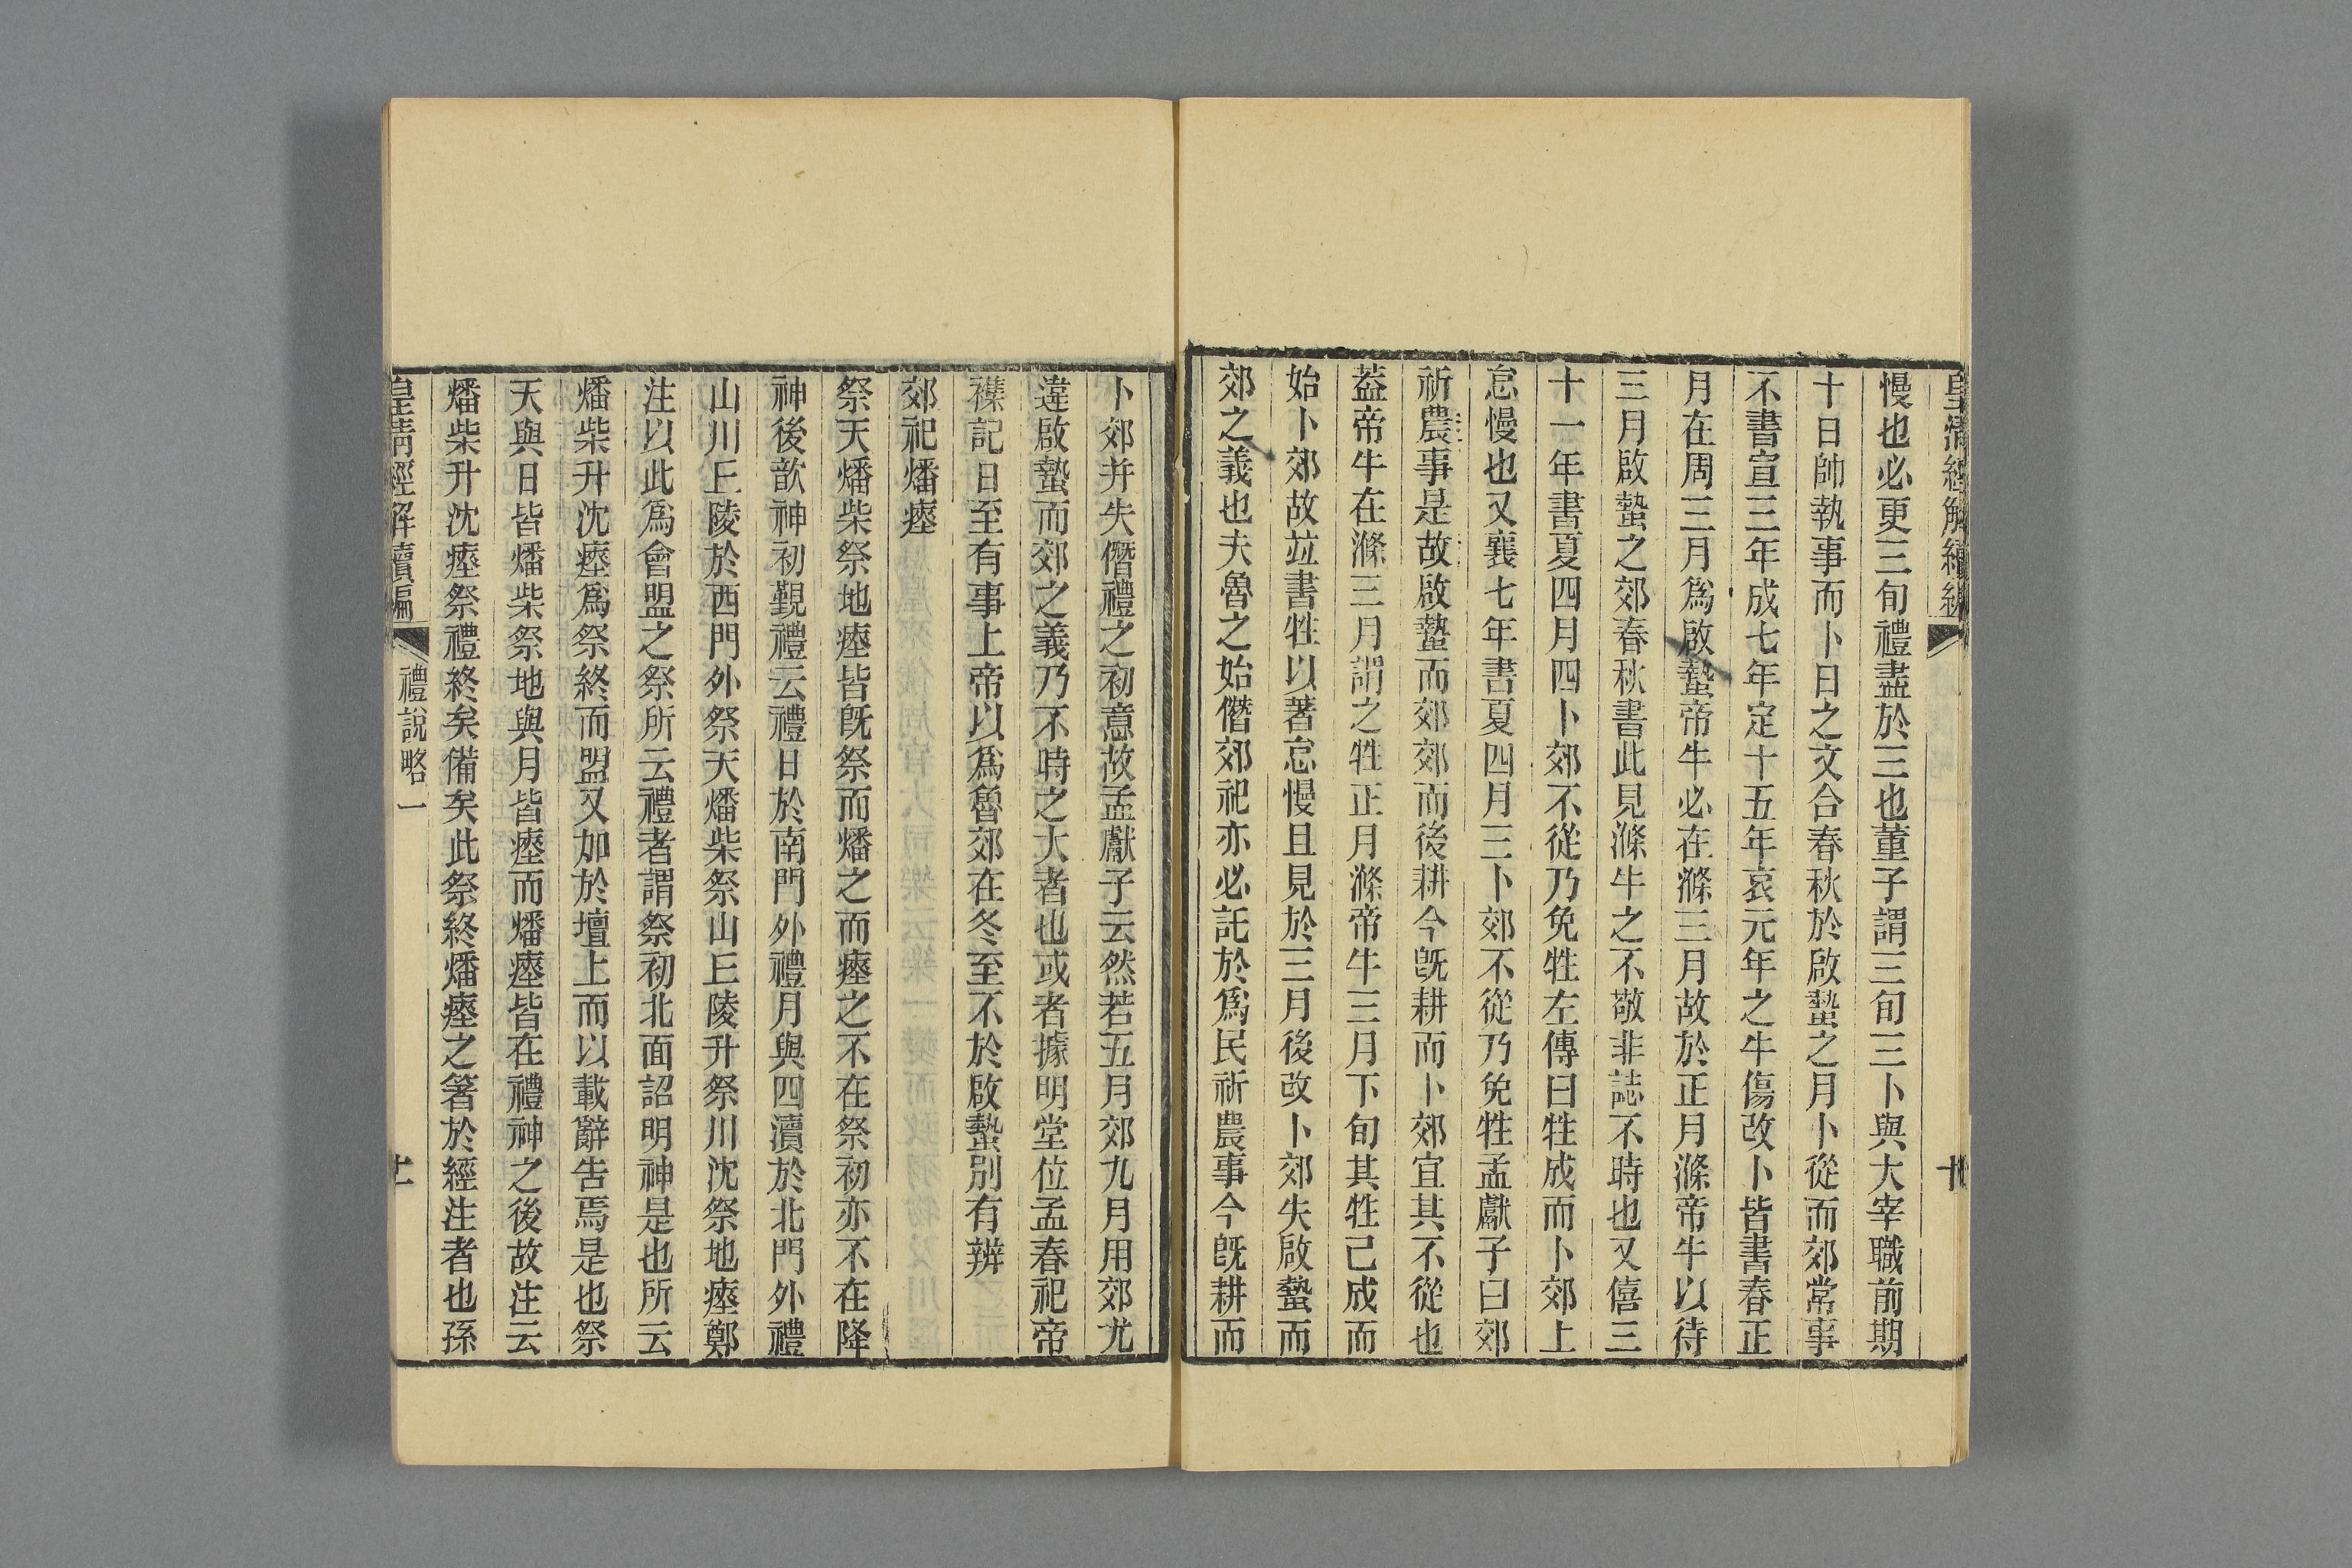 皇清經解續編
十
慢也必更三旬禮盡於三也董子謂三旬三卜與大宰職前期
十日帥執事而卜日之文合春秋於啟蟄之月卜從而郊常事
不書宣三年成七年定十五年哀元年之牛傷改卜皆書春正
月在周三月爲啟蟄帝牛必在滌三月故於正月滌帝牛以待
三月啟蟄之郊春秋書此見滌牛之不敬非誌不時也又僖三
十一年書夏四月四卜郊不從乃免牲左傳曰牲成而卜郊上
怠慢也又襄七年書夏四月三卜郊不從乃免牲孟獻子曰郊
祈農事是故啟蟄而郊郊而後耕今旣耕而卜郊宜其不從也
葢帝牛在滌三月謂之牲正月滌帝牛三月下旬其牲已成而
始卜郊故竝書牲以著怠慢且見於三月後改卜郊失啟蟄而
郊之義也夫魯之始僭郊祀亦必託於爲民祈農事今旣耕而
卜郊并失僭禮之初意故孟獻子云然若五月郊九月用郊尤
違啟蟄而郊之義乃不時之大者也或者據明堂位孟春祀帝
襍記日至有事上帝以爲魯郊在冬至不於啟蟄別有辨
郊祀燔瘞
祭天燔柴祭地瘞皆旣祭而燔之而瘞之不在祭初亦不在降
神後歆神初覲禮云禮日於南門外禮月與四瀆於北門外禮
山川丘陵於西門外祭天燔柴祭山丘陵升祭川沈祭地瘞鄭
注以此爲會盟之祭所云禮者謂祭初北面詔明神是也所云
燔柴升沈瘞爲祭終而盟又加於壇上而以載辭告焉是也祭
天與日皆燔柴祭地與月皆瘞而燔瘞皆在禮神之後故注云
燔柴升沈瘞祭禮終矣備矣此祭終燔瘞之箸於經注者也孫
皇清經解續編
禮說略一